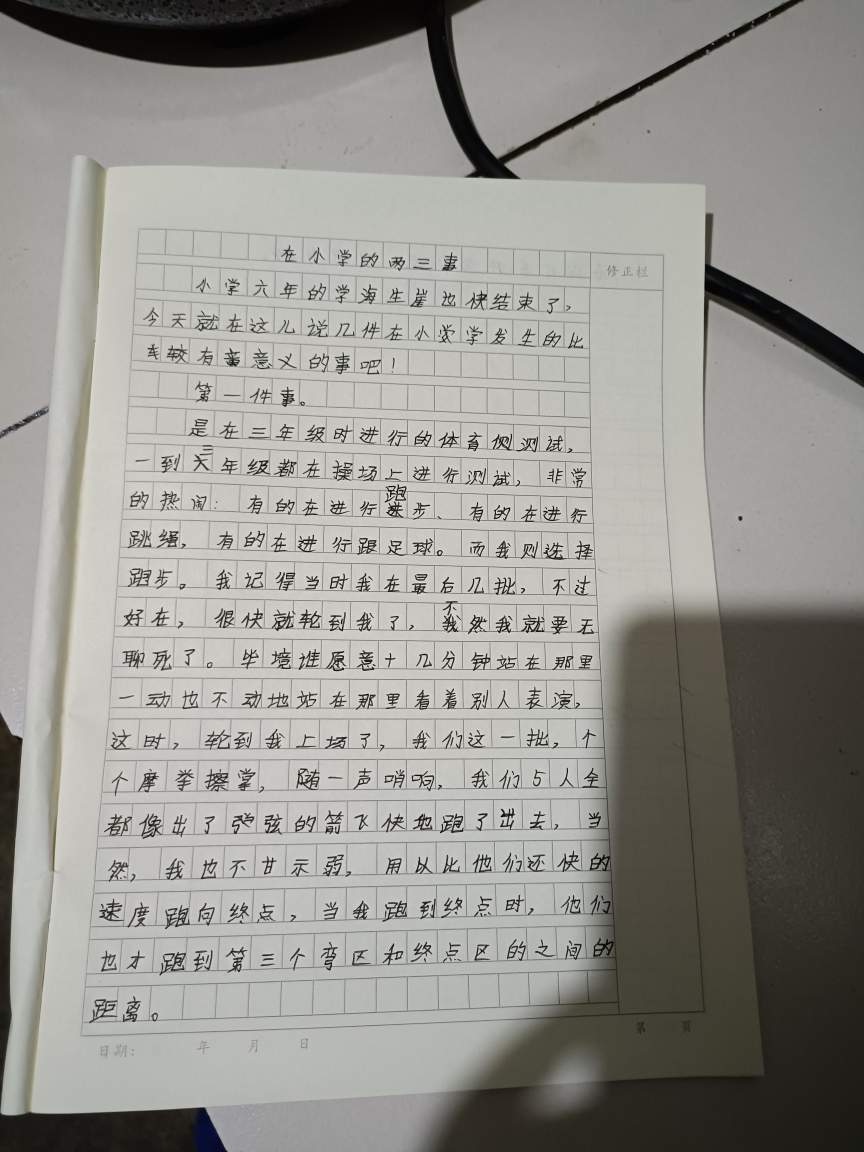 在小学的两三事
修正栏
小学六年的学海生崖也快结束了，
今天就在这儿说几件在小学发生的比
较有意义的事吧！
第一件事。
是在三年级时进行的体育测测试，
一到三年级都在操场上进行测试，非常
的热闹：有的在进行跑步、有的在进行
跳绳，有的在进行踢足球。而我则选择
跑步。我记得当时我在最后几批，不过
好在，很快就轮到我了，不然我就要无
聊死了。毕境谁愿意十几分钟站在那里
一动也不动地站在那里看着别人表演，
这时，轮到我上场了，我们这一批，个
个摩拳擦掌，随一声哨响，我们5人全
都像出了弹弦的箭飞快地跑了出去，当
然，我也不甘示弱，用以比他们还快的
速度跑向终点，当我跑到终点时，他们
也才跑到第三个弯区和终点区的之间的
距离。
日期： 年 月 日
第 页